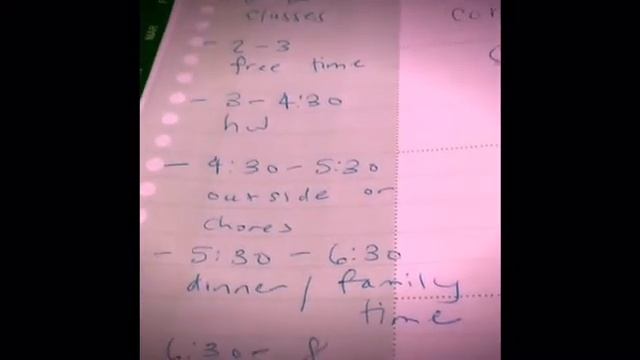 classes
- 2-3
free time
- 3-4:30
hw
- 4:30-5:30
outside or
chores
- 5:30 - 6:30
dinner / family
time
6:30- 8